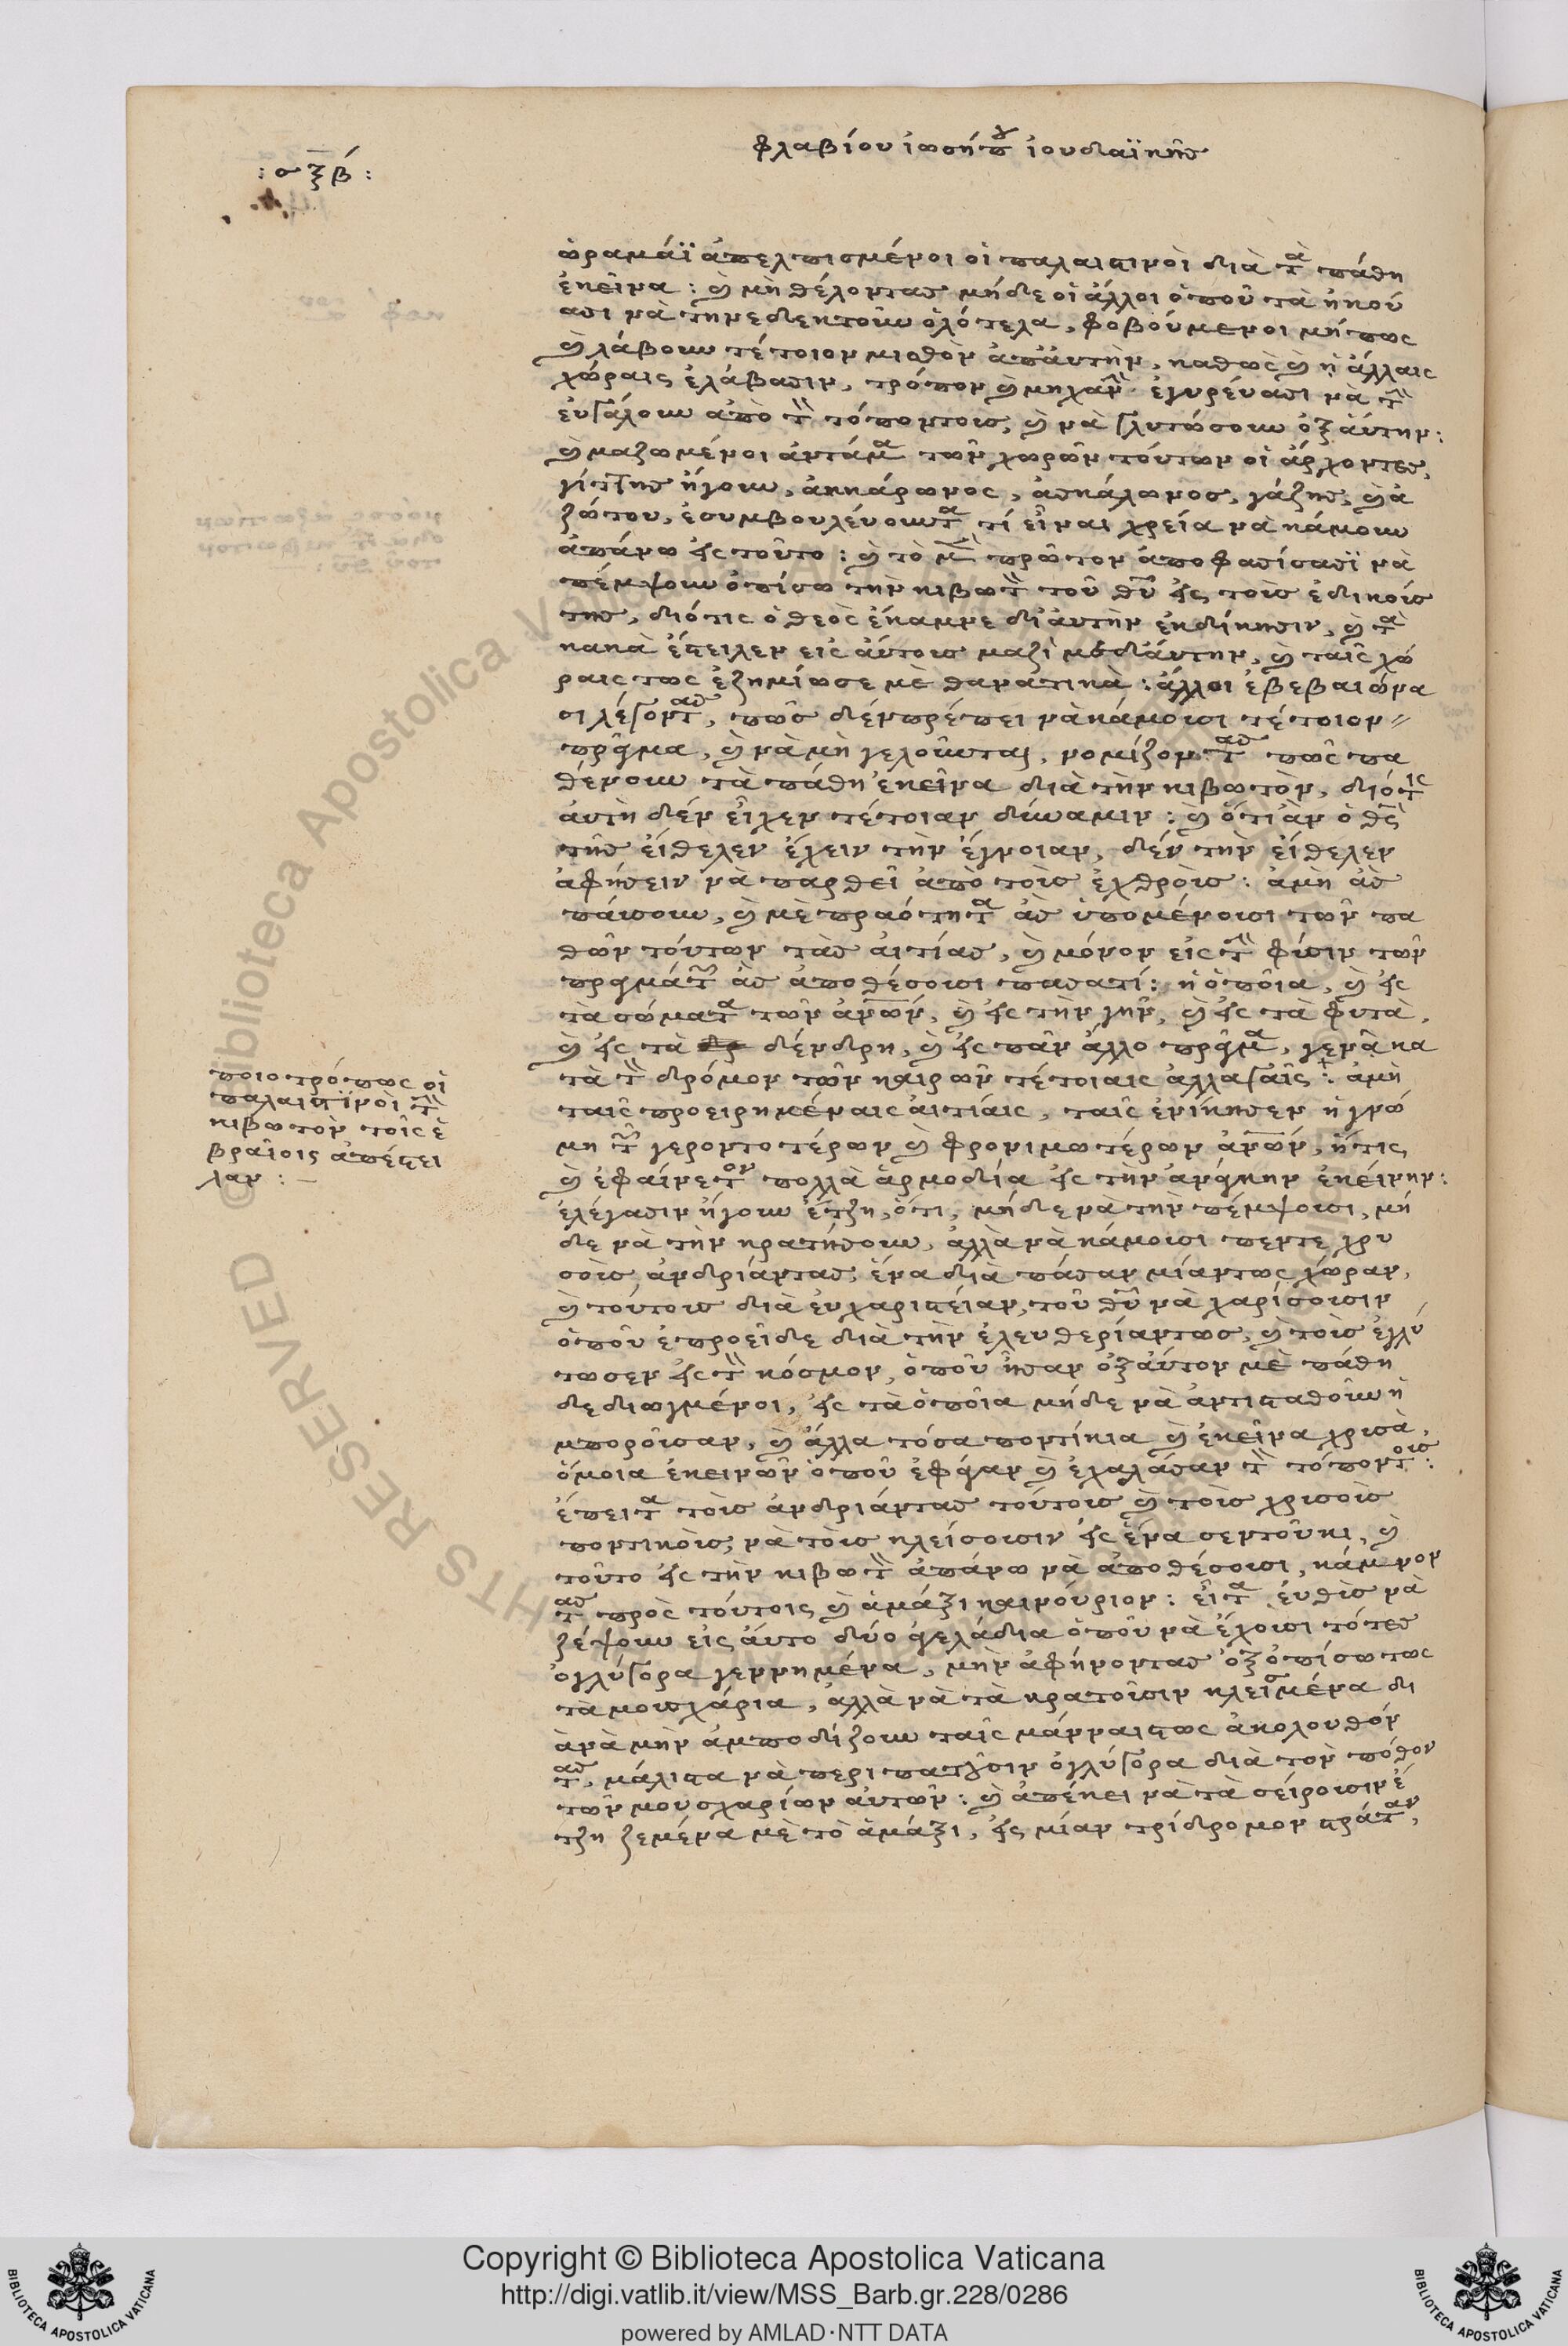 φλαβίου ἰωσήπου ἰουδαϊκῆς
: σξβ :
ὡραμάϊ ἀπελπισμένοι οἱ παλαιστινοὶ διὰ τὰ πάθη
ἐκεῖνα : ὲ μὴ θέλοντας μήδε οἱ ἄλλοι ὁποῦ τὰ ἠκού
ασι νὰ
ὁλότελα, φοβούμενοι μήπως
ὲ λάβουν τέτοιον μισθὸν ἀπ' ἀυτὴν, καθὼς ὲ ἡ ἄλλαις
χώραις ἐλάβασιν, τρόπον ὲ μηχανὴν ἐγυρεύασι νὰ τὴν
ἐυγάλουν ἀπὸ τὸν τόπον τους, ὲ νὰ γλυτώσουν ὀξ ἀύτην :
ὲ μαζωμένοι ἀντάμα τῶν χωρῶν τούτων οἱ ἄρχοντες,
γίττης ἤγουν, ἀκκάρωνος, ἀσκάλωνος, γάζης, ὲ ἀ
ζώτου, ἐσυμβουλέυουντα τί εἶναι χρεία νὰ κάμουν
ἀπάνω εἰς τοῦτο : ὲ τὸ μὲν πρῶτον ἀποφασίσασϊ νὰ
πέμψουν ὀπίσω τὴν κιβωτὸν τοῦ θῦ εἰς τοὺς ἐδικούς
της, διότις ὁ θεὸς ἔκαμνε δι' ἀυτὴν ἐκδίκησιν, ὲ τὰ
κακὰ ἔστειλεν εἰς ἀύτους μαζὶ
ὲ ταῖς χώ
ραις τως ἐζημίωσε μὲ θανατικὰ : ἄλλοι ἐβεβαιώνα
σι λέγοντας, πῶς δὲν πρέπει νὰ κάμουσι τέτοιον
πρᾶγμα, ὲ νὰ μὴ γελοῦνται, νομίζοντας πῶς πα
θένουν τὰ πάθη ἐκεῖνα διὰ τὴν κιβωτὸν, διότις
ἀυτὴ δὲν εἶχεν τέτοιαν δύναμιν : ὲ ὅτι ἀν ὁ θς
τῆς εἴθελεν ἔχειν τὴν ἔγνοιαν, δὲν τὴν εἴθελεν
ἀφήσειν νὰ παρθεῖ ἀπὸ τοὺς ἐχθροὺς : ἀμὴ ἂς
πάυσουν, ὲ μὲ πραότητα ἂς ὑπομένουσι τῶν πα
θῶν τούτων τὰς ἀιτίας, ὲ μόνον εἰς τὴν φύσιν τῶν
πραγμάτων ἂς ἀποθέσουσι πασατί : ἡ ὁποῖα, ὲ εἰς
τὰ σώματα τῶν ἀνῶν, ὲ εἰς τὴν γῆν, ὲ εἰς τὰ φυτὰ,
ὲ εἰς τὰ δένδρη, ὲ εἰς πᾶν ἄλλο πρᾶγμα, γενᾶ κα
τὰ τὸν δρόμον τῶν καιρῶν τέτοιαις ἀλλαγαῖς : ἀμὴ
ταῖς προειρημέναις ἀιτίαις, ταῖς ἐνίκησεν ἡ γνώ
μη τῶν γεροντοτέρων ὲ φρονιμωτέρων ἀνῶν, ἥτις
ὲ ἐφαίνετον πολλὰ ἁρμοδία εἰς τὴν ἀνάγκην ἐκείνην :
ἐλέγασιν ἤγουν ἔτζη, ὅτι, μήδε νὰ τὴν πέμψουσι, μή
δε νὰ τὴν κρατήσουν, ἀλλὰ νὰ κάμουσι πεντε χρυ
σοὺς ἀνδριάντας, ἕνα διὰ πάσαν μίαν τως χώραν,
ὲ τούτους διὰ ἐυχαριστείαν τοῦ θῦ νὰ χαρίσουσιν
ὁποῦ ἐπροεῖδε διὰ τὴν ἐλευθερίαν τως, ὲ τοὺς ἐγλύ
τωσεν εἰς τὸν κόσμον, ὁποῦ ἦσαν ὀξ ἀύτον μὲ πάθη
δεδιωγμένοι, εἰς τὰ ὁποῖα μήδε νὰ ἀντισταθοῦν ἠ
μποροῦσαν, ὲ ἄλλα τόσα ποντίκια ὲ ἐκεῖνα χρυσὰ,
ὅμοια ἐκεινῶν ὁποῦ ἐφάγαν ὲ ἐχαλάσαν τὸν τόπον τους :
ἔπειτα τοὺς ἀνδριάντας τούτους ὲ τοὺς χρυσοὺς
ποντικοὺς, νὰ τοὺς κλείσουσιν εἰς ἕνα σεντοῦκι, ὲ
τοῦτο εἰς τὴν κιβωτὸν ἀπάνω νὰ ἀποθέσουσι, κάμνον
τας πρὸς τούτοις ὲ ἁμάξι καινούριον : εἶτα ἐυθὺς νὰ
ζέψουν εἰς ἀύτο δύο ἀγελάδια ὁποῦ νὰ ἔχουσι τότες
ὀγλύγορα γεννημένα, μὴν ἀφήνοντας ὀξοπίσω τως
τὰ μουσχάρια, ἀλλὰ νὰ τὰ κρατοῦσιν κλεισμένα δι
ὰ νὰ μὴν ἀμποδίζουν ταῖς μάνναις τως ἀκολουθόν
τας, μάλιστα νὰ περιπατοῦσιν ὀγλύγορα διὰ τὸν πόθον
τῶν μουσχαρίων ἀυτῶν : ὲ ἀπέκει νὰ τὰ σύρουσιν ἔ
τζη ζεμένα μὲ τὸ ἁμάξι, εἰς μίαν τρίδρομον στράταν,
ποιοτρόπως οἱ
παλαιστινοὶ τὴν
κιβωτὸν τοῖς ἑ
βραίοις ἀπέστει
λαν : —
Copyright © Biblioteca Apostolica Vaticana
http://digi.vatlib.it/view/MSS_Barb.gr.228/0286
powered by AMLAD·NTT DATA
BIBLIOTECA APOSTOLICA VATICANA
BIBLIOTECA APOSTOLICA VATICANA